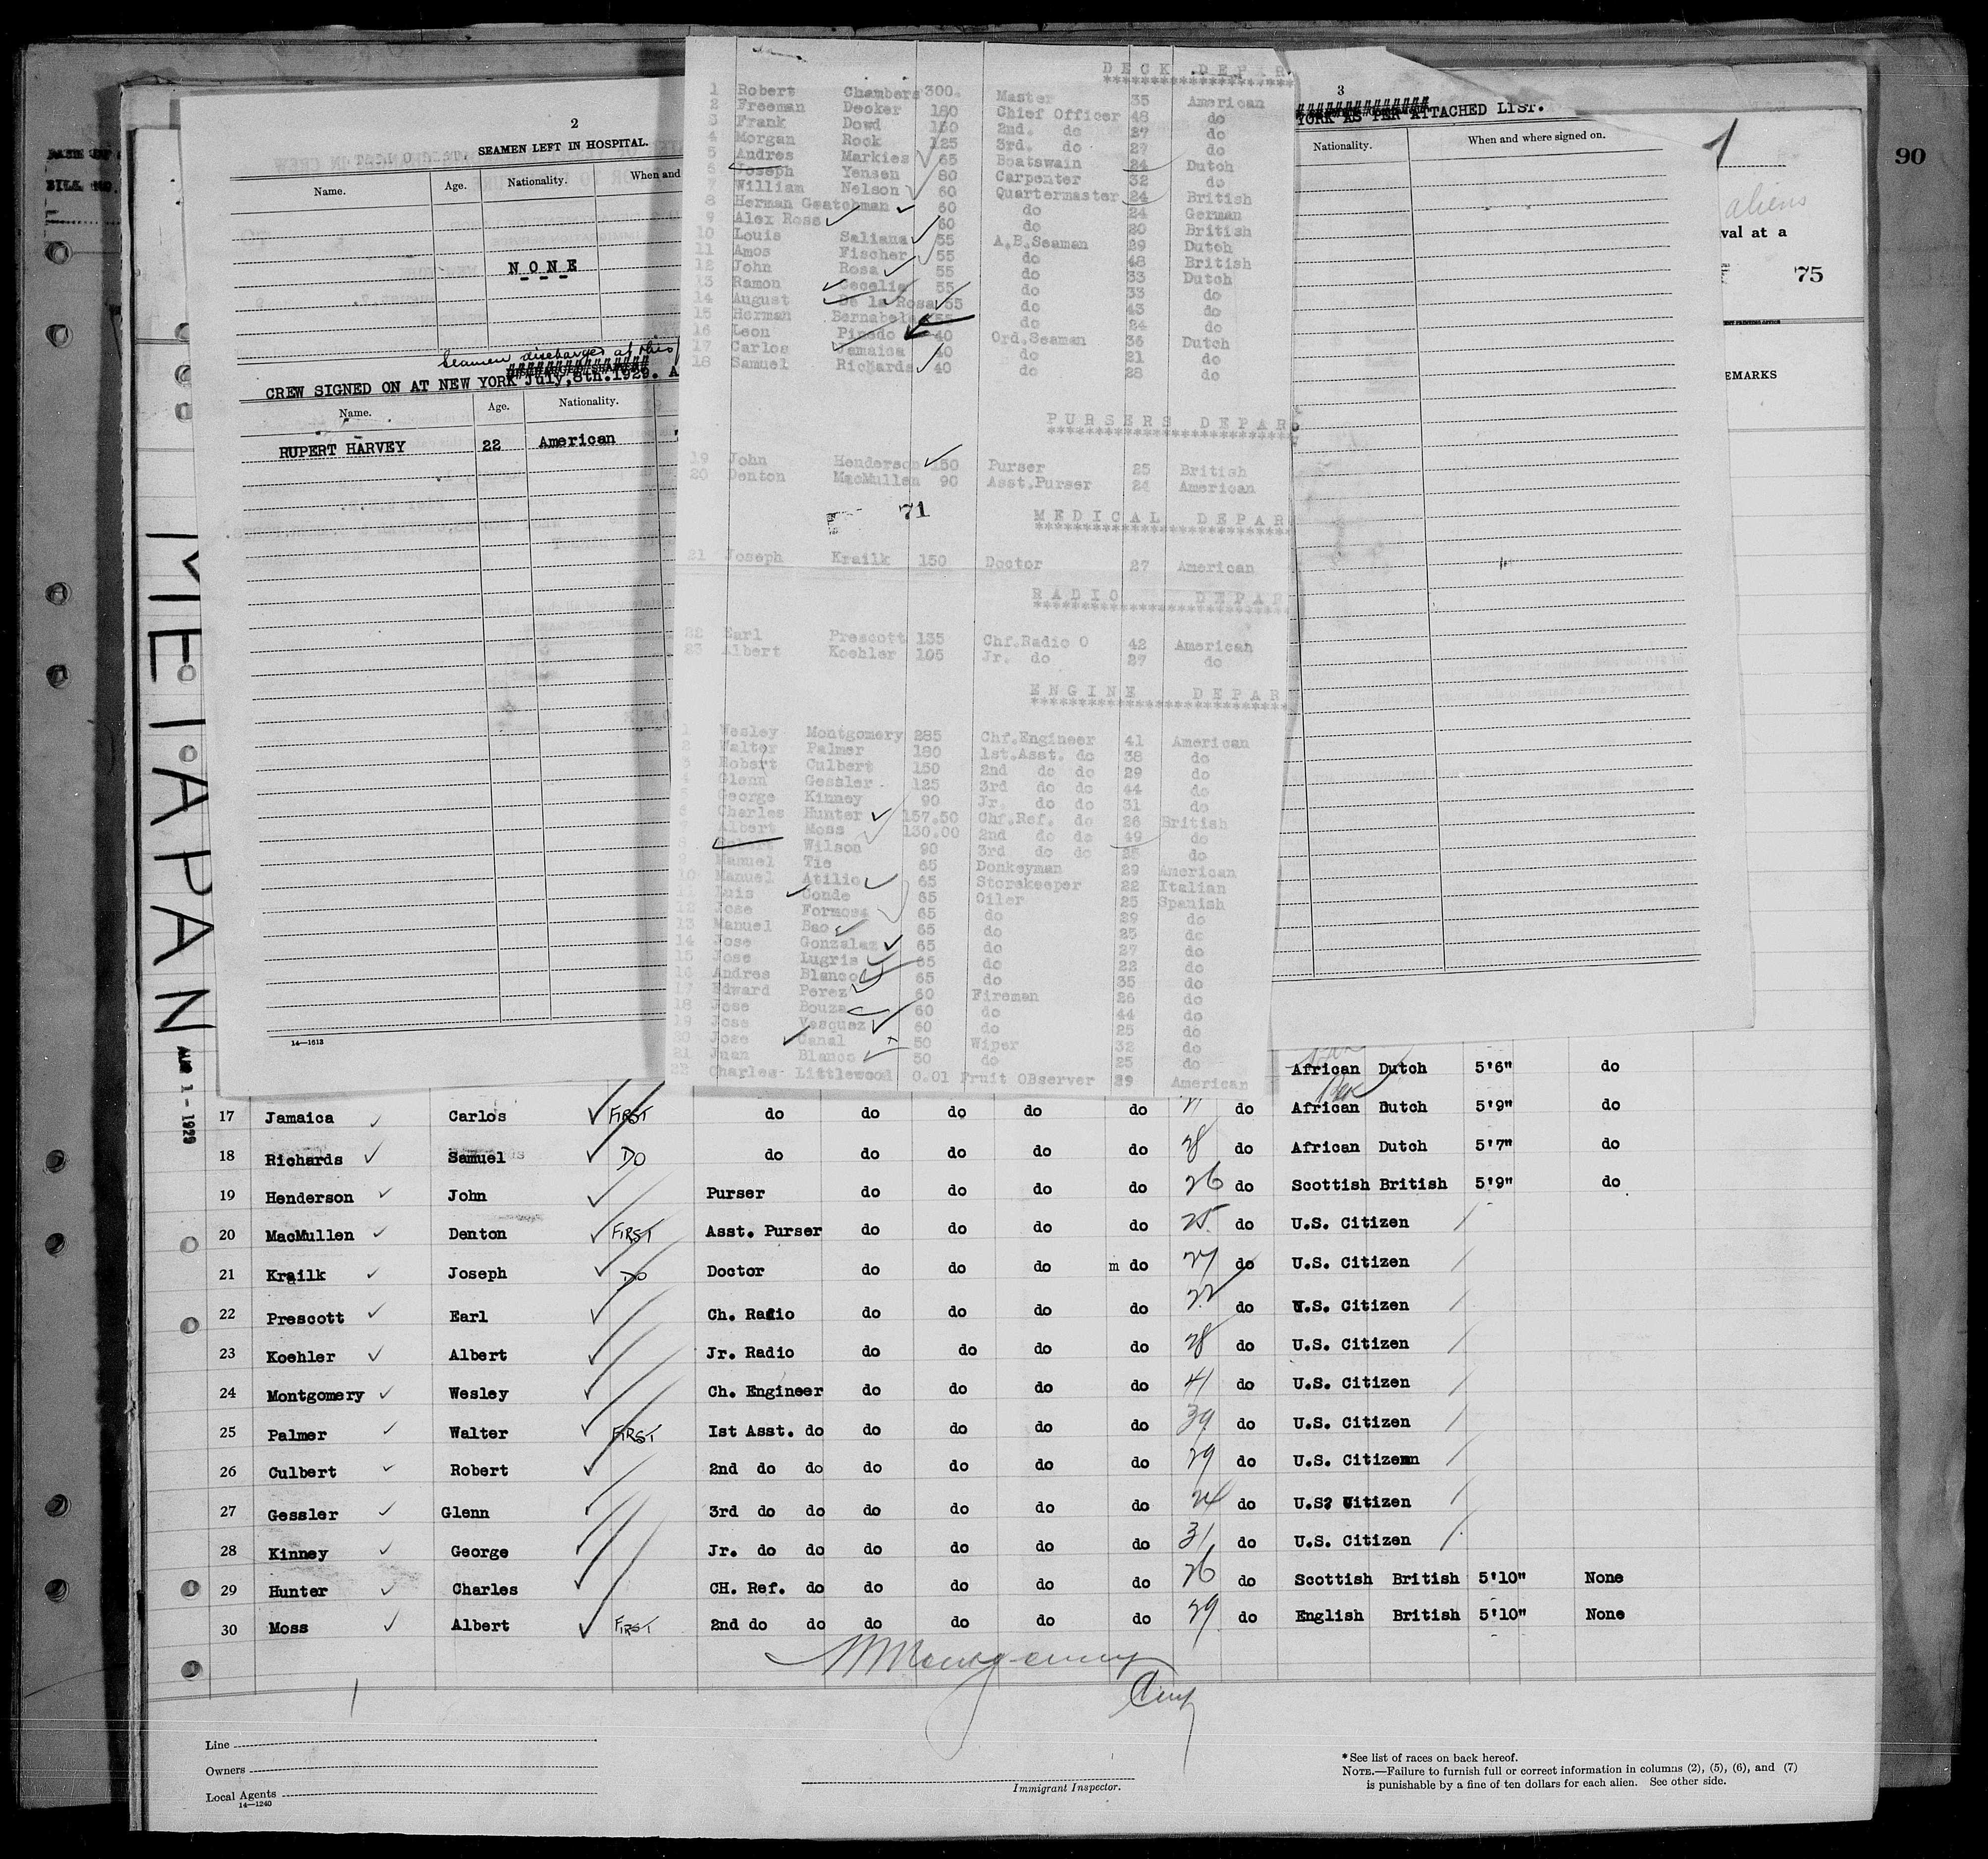 2
SEAMEN LEFT IN HOSPITAL.
Name. Age. Nationality. When and
NONE
Seamen discharged at this
CREW SIGNED ON AT NEW YORK July,8th.1929. A
Name. Age. Nationality.
RUPERT HARVEY 22 American
14—1613
DECK DEPAR
1 Robert Chambers 300. Master 35 American
2 Freeman Decker 180 Chief Officer 48 do
3 Frank Dowd 150 2nd. do 27 do
4 Morgan Rock 125 3rd. do 27 do
5 Andres Markies 65 Boatswain 24 Dutch
6 Joseph Yensen 80 Carpenter 32 do
7 William Nelson 60 Quartermaster 24 British
8 Herman Geatchman 60 do 24 German
9 Alex Ross 60 do 20 British
10 Louis Saliana 55 A.B.Seaman 29 Dutch
11 Amos Fischer 55 do 48 British
12 John Rosa 55 do 33 Dutch
13 Ramon Cecelia 55 do 33 do
14 August De la Rosa 55 do 43 do
15 Herman Bernabela 55 do 24 do
16 Leon Pinedo 40 Ord.Seaman 36 Dutch
17 Carlos Jamaica 40 do 21 do
18 Samuel Richards 40 do 28 do
PURSERS DEPAR
19 John Henderson 150 Purser 25 British
20 Denton MacMullen 90 Asst.Purser 24 American
71
MEDICAL DEPAR
21 Joseph Krailk 150 Doctor 27 American
RADIO DEPAR
22 Earl Prescott 135 Chf.Radio O 42 American
23 Albert Koehler 105 Jr. do 27 do
ENGINE DEPAR
1 Wesley Montgomery 285 Chf.Engineer 41 American
2 Walter Palmer 180 1st.Asst. do 38 do
3 Robert Culbert 150 2nd do do 29 do
4 Glenn Gessler. 125 3rd do do 44 do
5 George Kinney 90 Jr. do do 31 do
6 Charles Hunter 157.50 Chf.Ref. do 26 British
7 Albert Moss 130.00 2nd do do 49 do
8 Robert Wilson 90 3rd do do 25 do
9 Manuel Tie 65 Donkeyman 29 American
10 Manuel Atilio 65 Storekeeper 22 Italian
11 Luis Conde 65 Oiler 25 Spanish
12 Jose Formosa 65 do 29 do
13 Manuel Bao 65 do 25 do
14 Jose Gonzalaz 65 do 27 do
15 Jose Lugris 65 do 22 do
16 Andres Blanco 65 do 35 do
17 Edward Perez 60 Fireman 26 do
18 Jose Bouza 60 do 44 do
19 Jose Vasquez 60 do 25 do
20 Jose Canal 50 Wiper 32 do
21 Juan Blanco 50 do 25 do
22 Charles Littlewood 0.01 Fruit OBserver 39 American
3
YORK AS PER ATTACHED LIST.
Nationality. When and where signed on.
1
90
aliens
val at a
75
EMARKS
METAPAN
AUG 1 - 1929
African Dutch 5'6" do
17 Jamaica Carlos FIRST do do do do do 21 do African Dutch 5'9" do
18 Richards Samuel DO do do do do do 28 do African Dutch 5'7" do
19 Henderson John Purser do do do do 26 do Scottish British 5'9" do
20 MacMullen Denton FIRST Asst. Purser do do do do 25 do U.S. Citizen
21 Krailk Joseph DO Doctor do do do m do 27 do U.S. Citizen
22 Prescott Earl Ch. Radio do do do do do U.S. Citizen
23 Koehler Albert Jr. Radio do do do do 28 do U.S. Citizen
24 Montgomery Wesley Ch. Engineer do do do do 41 do U.S. Citizen
25 Palmer Walter FIRST Ist Asst. do do do do do 39 do U.S. Citizen
26 Culbert Robert 2nd do do do do do do 29 do U.S. Citizemn
27 Gessler Glenn 3rd do do do do do do 24 do U.S? Citizen
28 Kinney George Jr. do do do do do do 31 do U.S. Citizen
29 Hunter Charles CH. Ref. do do do do do 26 do Scottish British 5'10" None
30 Moss Albert FIRST 2nd do do do do do do 29 do English British 5'10" None
Line
Owners
Local Agents
14—1240
Immigrant Inspector.
* See list of races on back hereof.
NOTE.—Failure to furnish full or correct information in columns (2), (5), (6), and (7)
is punishable by a fine of ten dollars for each alien. See other side.